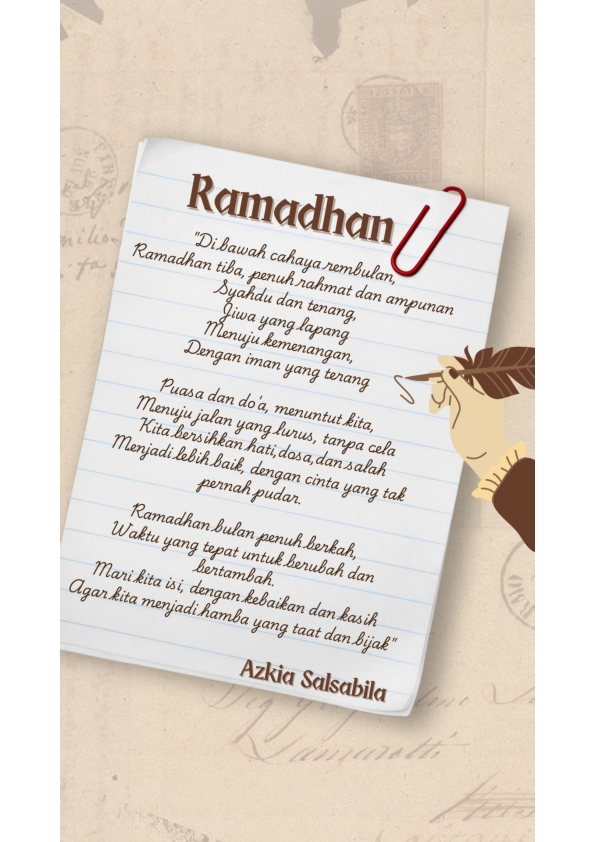 Ramadhan
"Di bawah cahaya rembulan,
Ramadhan tiba, penuh rahmat dan ampunan
Syahdu dan tenang,
Jiwa yang lapang
Menuju kemenangan,
Dengan iman yang terang
Puasa dan do'a, menuntut kita,
Menuju jalan yang lurus, tanpa cela
Kita bersihkan hati, dosa, dan salah
Menjadi lebih baik, dengan cinta yang tak
pernah pudar.
Ramadhan bulan penuh berkah,
Waktu yang tepat untuk berubah dan
bertambah.
Mari kita isi, dengan kebaikan dan kasih
Agar kita menjadi hamba yang taat dan bijak"
Azkia Salsabila